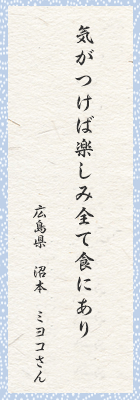 気がつけば楽しみ全て食にあり
広島県 沼本 ミヨコさん